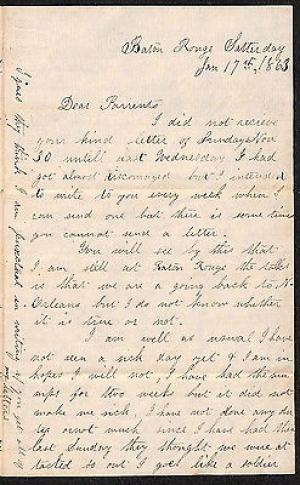 Baton Rouge Satterday
Jan 17th, 1863
Dear Parrents
I did not recieve
your kind letter of Sundays Nov
30 untill last Wednesday I had
got almost discouraged but I intend
to write to you every week when I
can send one but there is some times
you cannot send a letter.
You will see by this that
I am still at Baton Rouge the talk
is that we are a going back to N.
Orleans but I do not know whether
it is true or not.
I am well as usual I have
not seen a sick day yet & I am in
hopes I will not, I have had the mu
mps for two weeks but it did not
make me sick, I have not done any du
ty or not much since I have had them
last Sunday they thought we were at
tacted so out I goes like a soldier
I guess they think I am in writing if you get all of
my letters